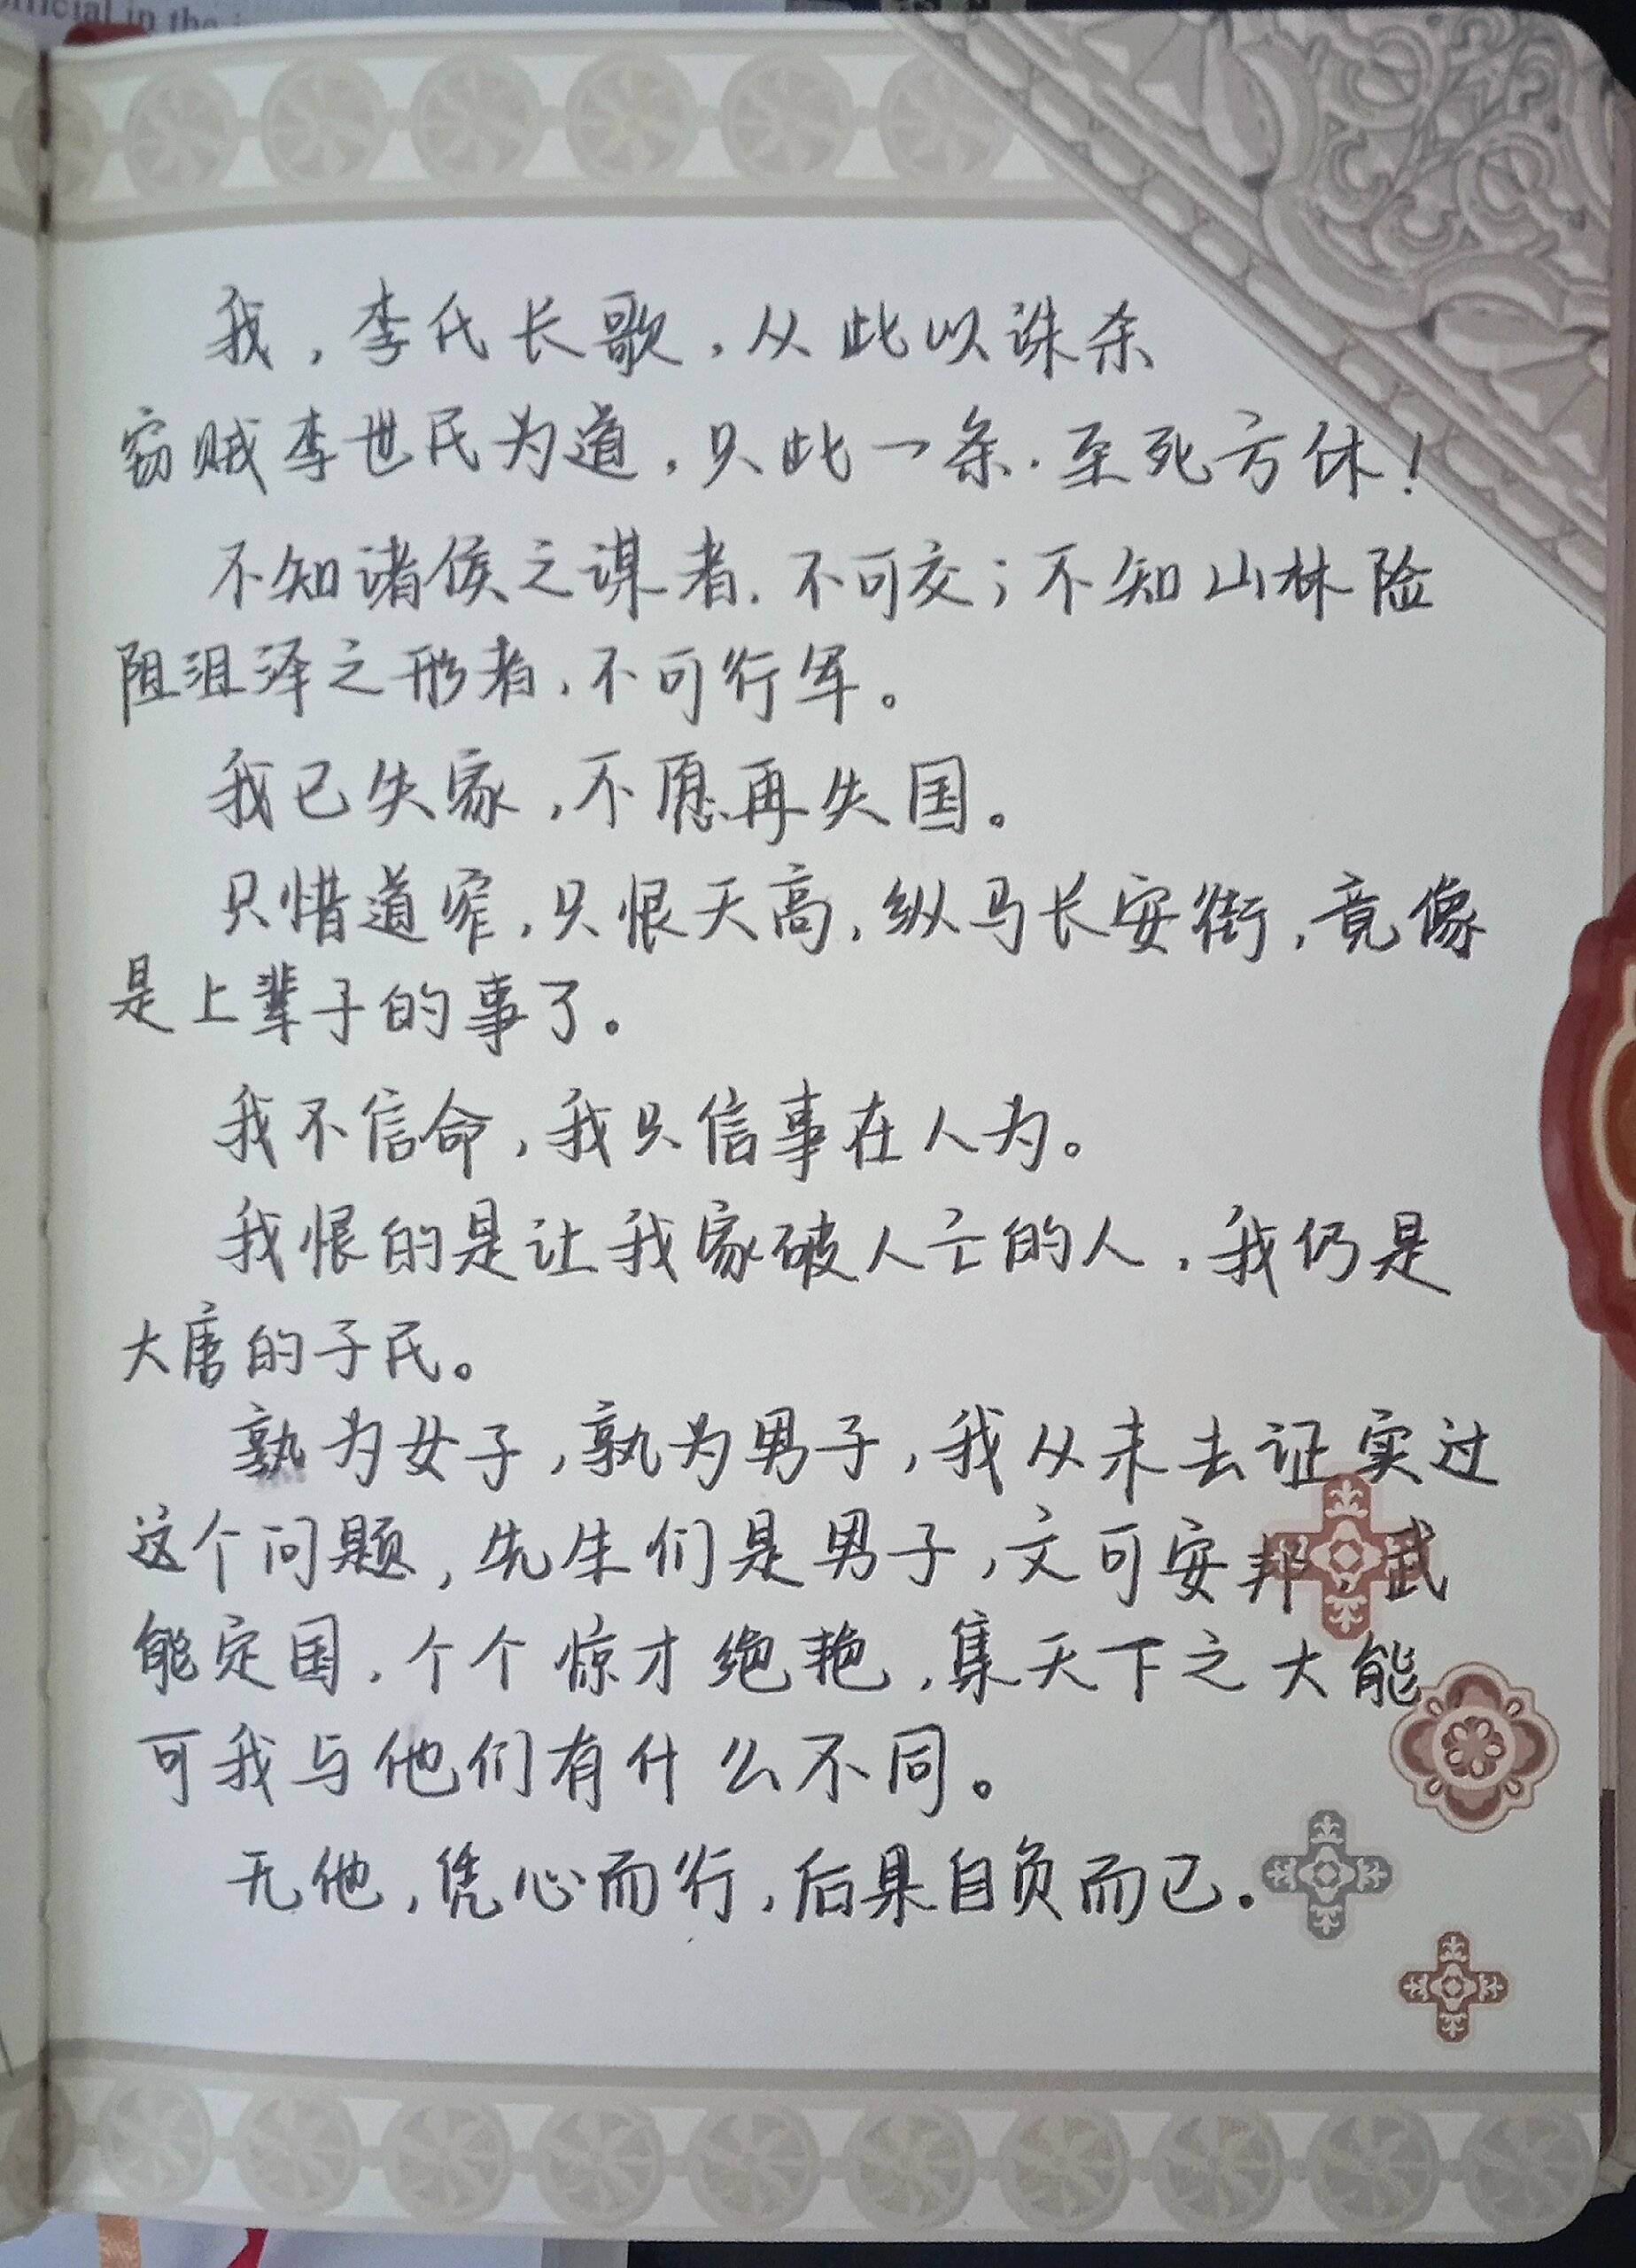 official in the
我，李氏长歌，从此以诛杀
窃贼李世民为道，只此一条.至死方休！
不知诸侯之谋者.不可交；不知山林险
阻沮泽之形者，不可行军。
我已失家，不愿再失国。
只惜道窄，只恨天高，纵马长安街，竟像
是上辈子的事了。
我不信命，我只信事在人为。
我恨的是让我家破人亡的人，我仍是
大唐的子民。
孰为女子，孰为男子，我从未去证实过
这个问题，先生们是男子，文可安邦，武
能定国，个个惊才绝艳，集天下之大能
可我与他们有什么不同。
无他，凭心而行，后果自负而已.